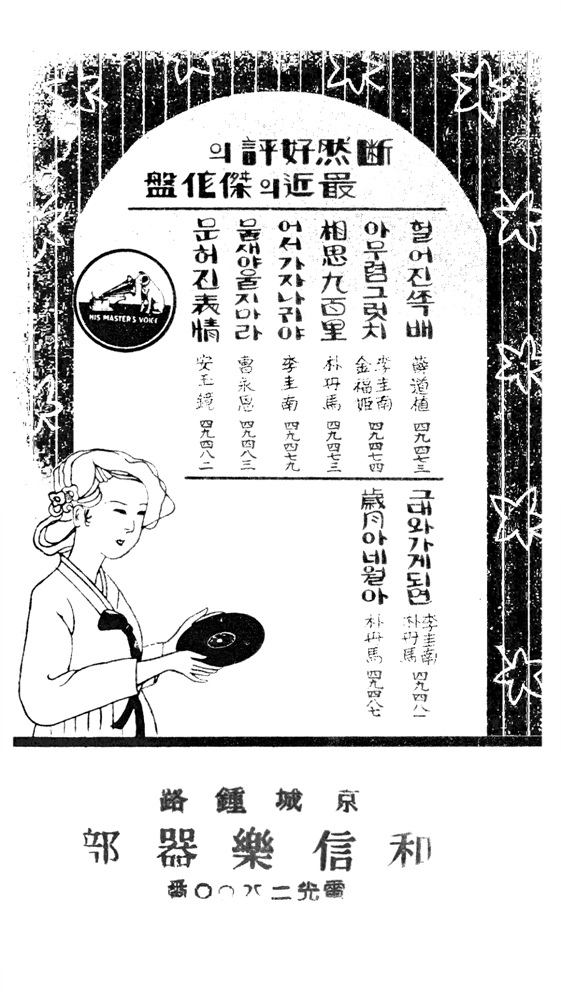 斷然好評의
最近의傑作盤
헐어진쪽배 薛道植 四九四七三
아무렴그럿치 李圭南 金福姬 四九四七四
相思九百里 朴丹馬 四九四七三
어서가자나귀야 李圭南 四九四七九
물새야울지마라 曺永恩 四九四八三
문허진表情 安玉鏡 四九四八二
그대와가게되면 李圭南 朴丹馬 四九四八一
歲月아네월아 朴丹馬 四九四八七
HIS MASTER'S VOICE
京城鍾路
和信樂器部
電光二八〇〇番